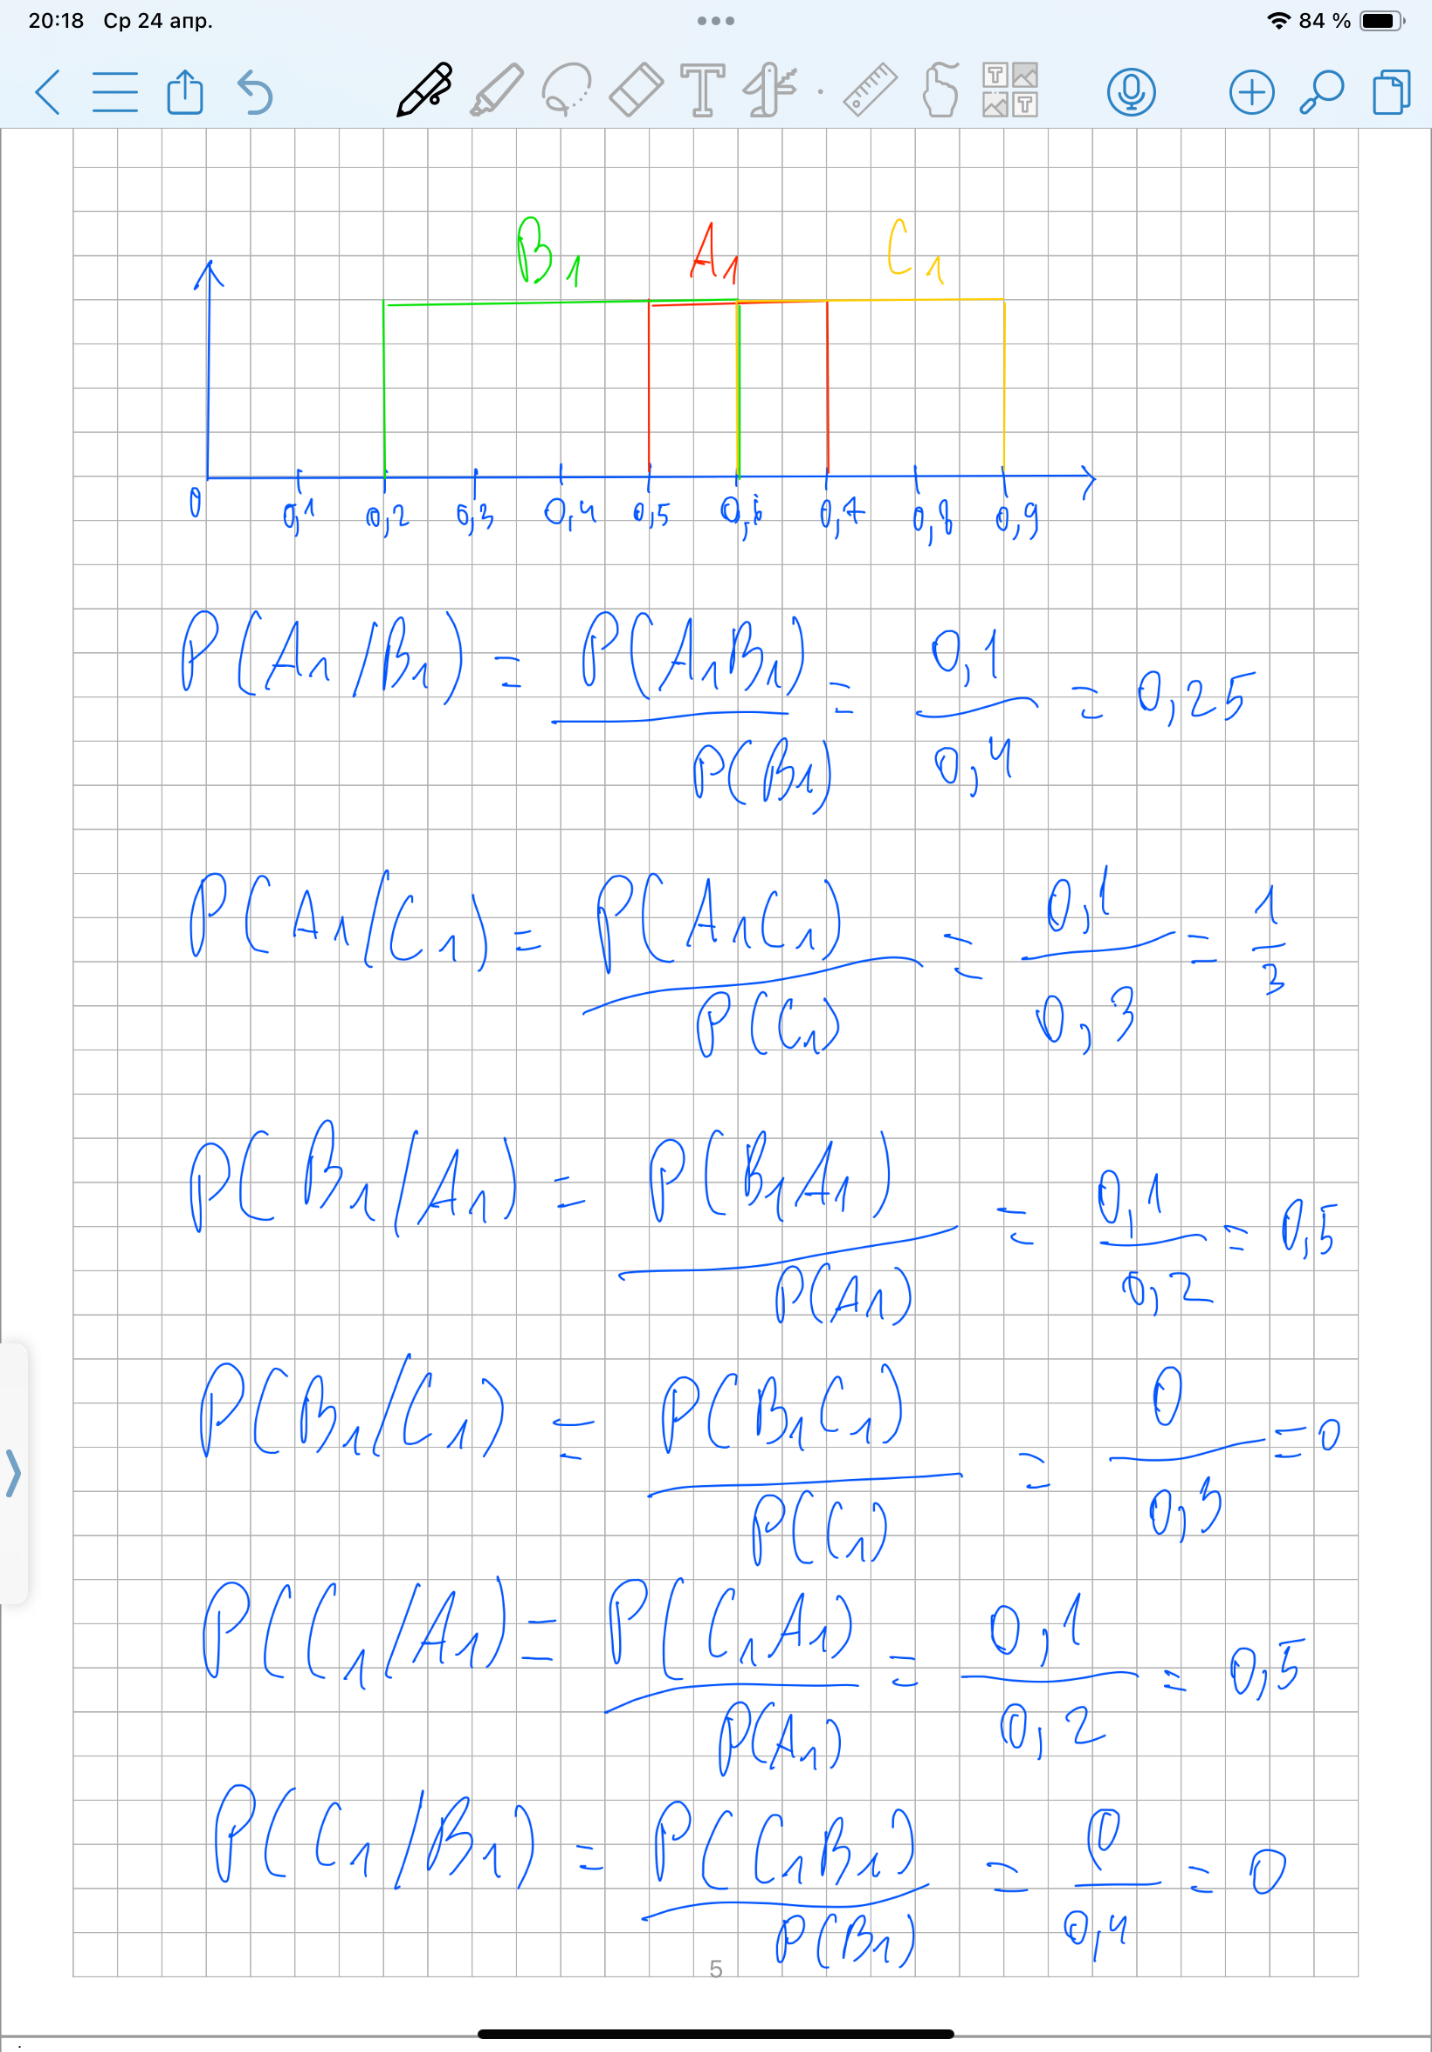 20:18 Ср 24 апр.
84 %
B₁ A₁ C₁
0 0,1 0,2 0,3 0,4 0,5 0,6 0,7 0,8 0,9
P(A₁/B₁) = P(A₁B₁) / P(B₁) = 0,1 / 0,4 = 0,25
P(A₁/C₁) = P(A₁C₁) / P(C₁) = 0,1 / 0,3 = 1/3
P(B₁/A₁) = P(B₁A₁) / P(A₁) = 0,1 / 0,2 = 0,5
P(B₁/C₁) = P(B₁C₁) / P(C₁) = 0 / 0,3 = 0
P(C₁/A₁) = P(C₁A₁) / P(A₁) = 0,1 / 0,2 = 0,5
P(C₁/B₁) = P(C₁B₁) / P(B₁) = 0 / 0,4 = 0
5